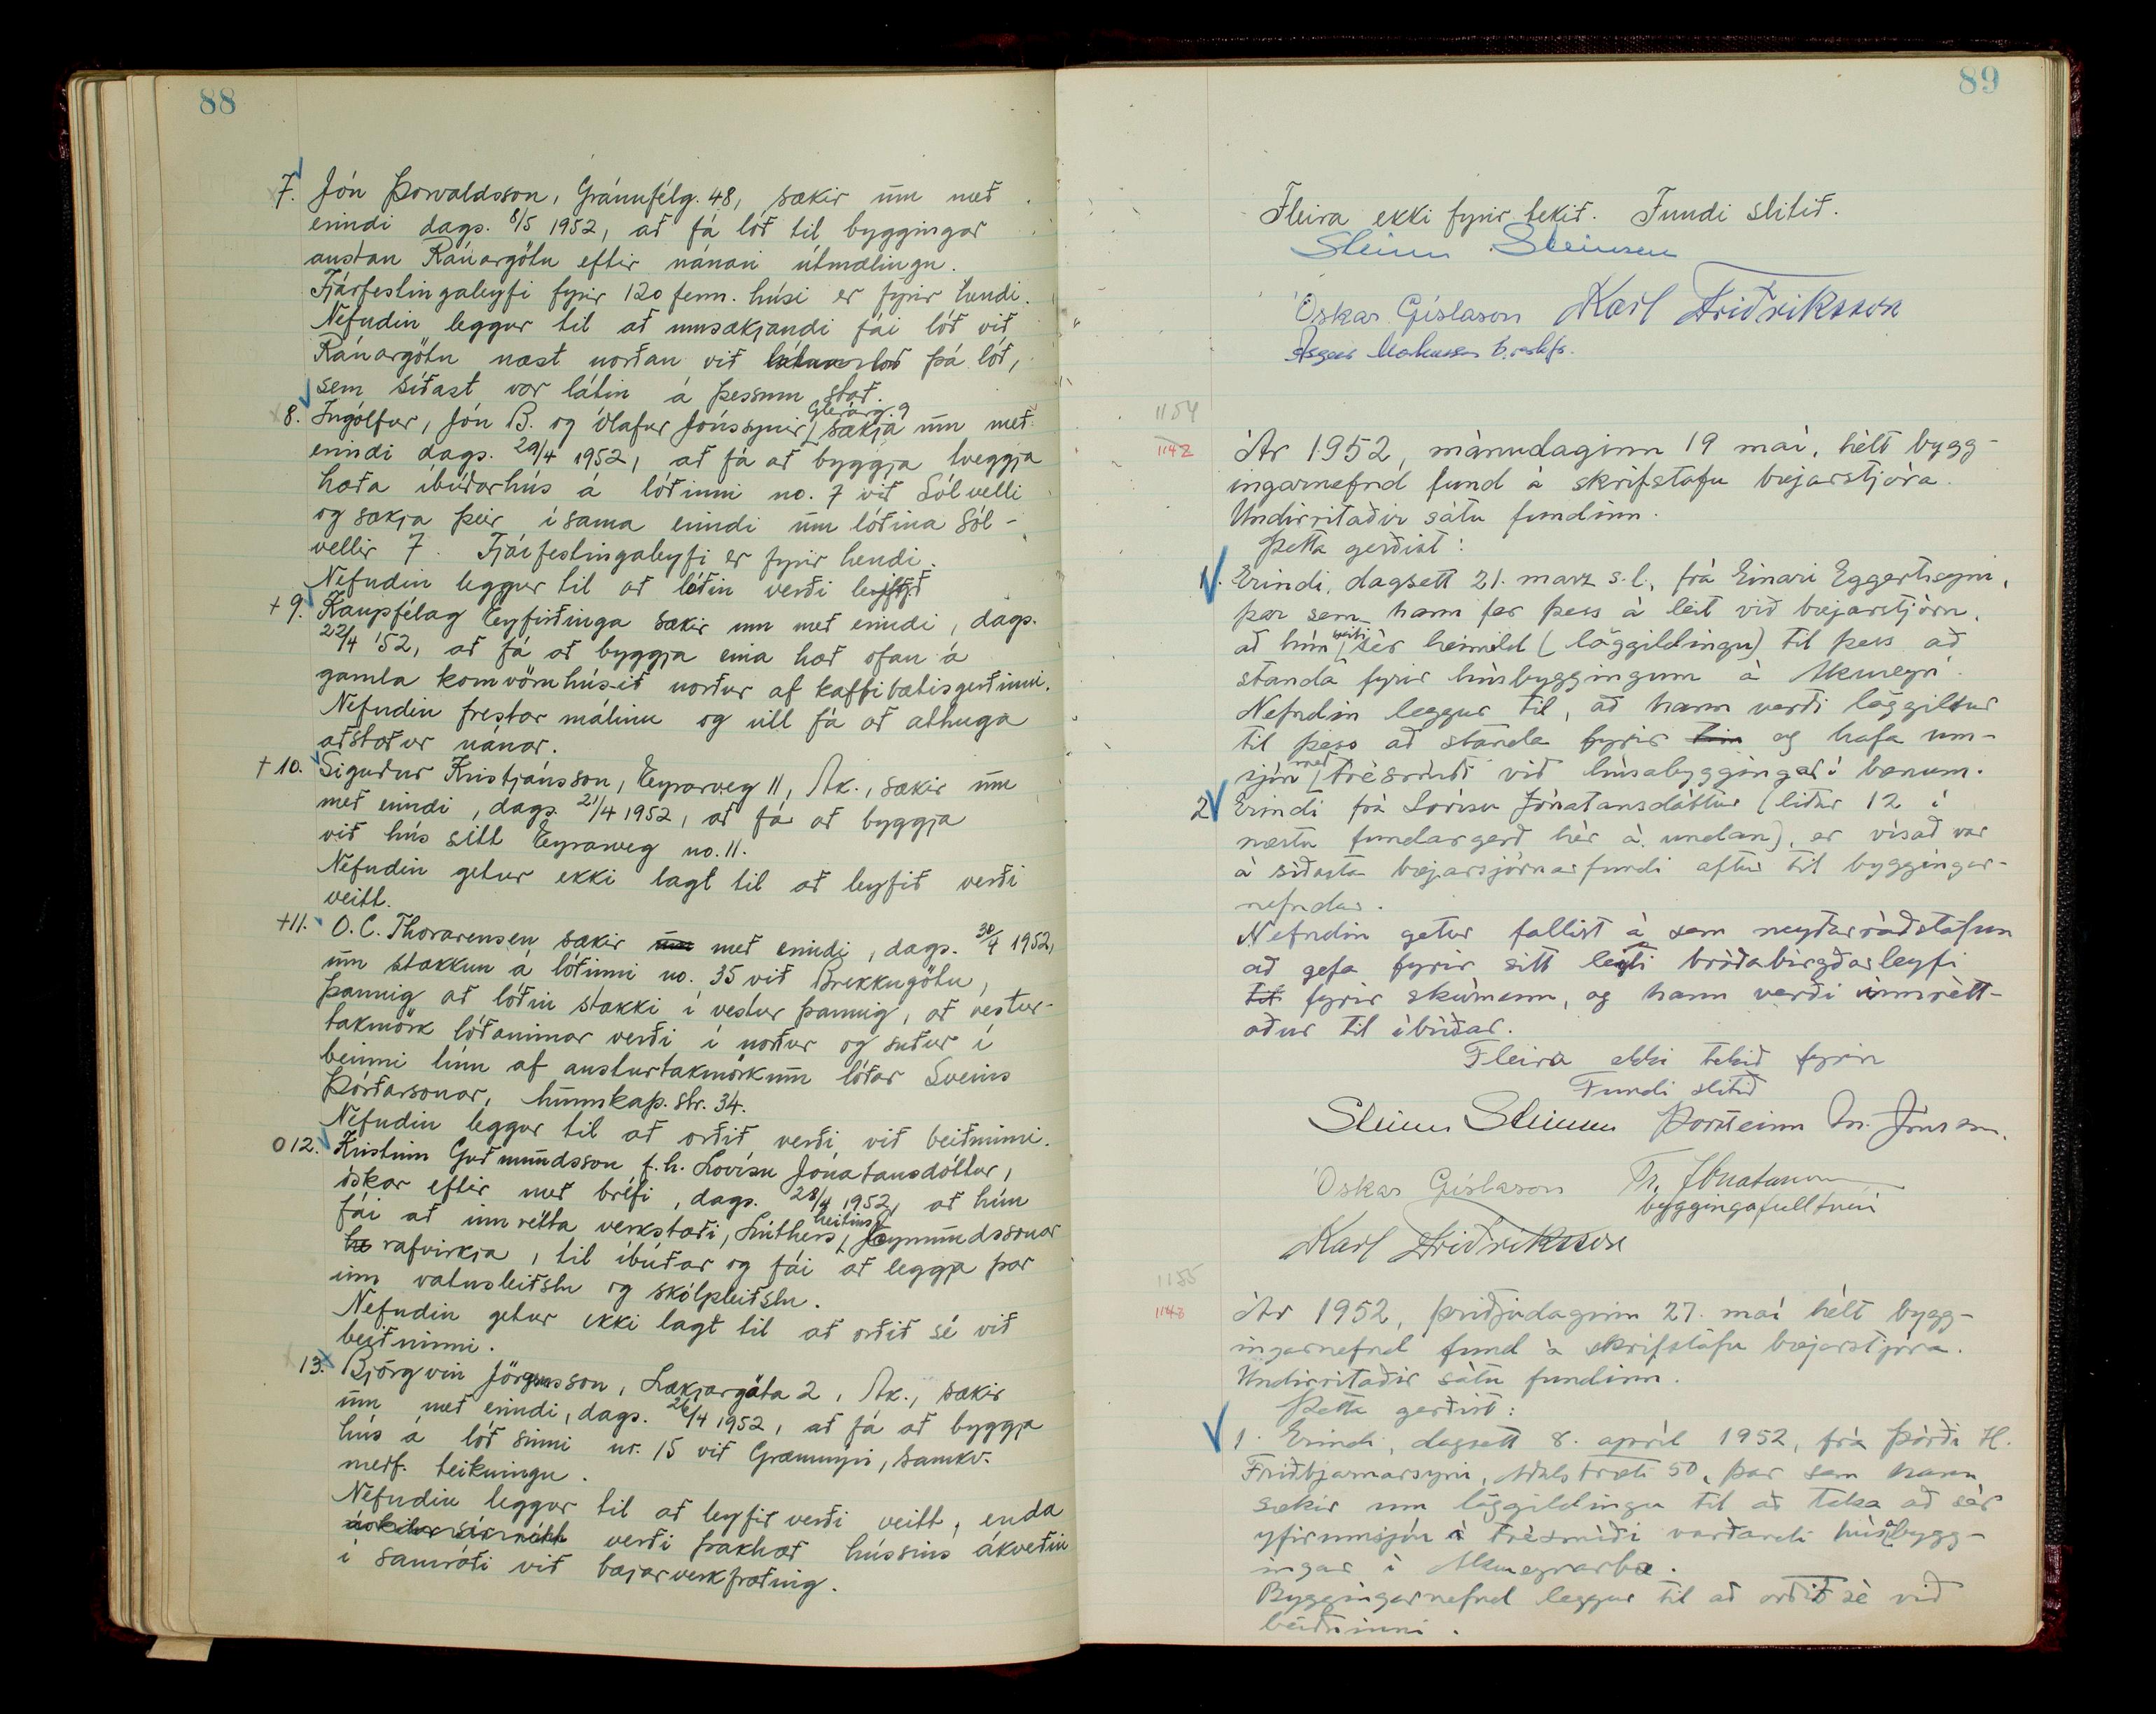 88
7. Jón Þorvaldsson, Gránufélg. 48, sækir um með
erindi dags. 8/5 1952, að fá lóð til byggingar
austan Ránargötu eftir nánari útmælingu.
Fjárfestingaleyfi fyrir 120 ferm. húsi er fyrir hendi.
Nefndin leggur til að umsækjandi fái lóð við
Ránargötu næst norðan við þá lóð,
sem síðast var látin á þessum stað.
8. Ingólfur, Jón B. og Ólafur Jónssynir, Glerárg. 9 sækja um með
erindi dags. 29/4 1952, að fá að byggja tveggja
hæða íbúðarhús á lóðinni no. 7 við Sólvelli
og sækja þeir í sama erindi um lóðina Sól-
vellir 7. Fjárfestingaleyfi er fyrir hendi.
Nefndin leggur til að lóðin verði leigð
+ 9. Kaupfélag Eyfirðinga sækir um með erindi, dags.
22/4 '52, að fá að byggja eina hæð ofan á
gamla kornvöruhúsið norður af kaffibætisgerðinni.
Nefndin frestar málinu og vill fá að athuga
aðstæður nánar.
+ 10. Sigurður Kristjánsson, Eyrarveg 11, Ak., sækir um
með erindi, dags. 21/4 1952, að fá að byggja
við hús sitt Eyraveg no. 11.
Nefndin getur ekki lagt til að leyfið verði
veitt.
+11. O. C. Thorarensen sækir um með erindi, dags. 30/4 1952,
um stækkun á lóðinni no. 35 við Brekkugötu,
þannig að lóðin stækki í vestur þannig, að vestur-
takmörk lóðarinnar verði í norður og suður í
beinni línu af austurtakmörkum lóðar Sveins
Þórðarsonar, Munkaþ.str. 34.
Nefndin leggur til að orðið verði við beiðninni.
O 12. Kristinn Guðmundsson f.h. Lovísu Jónatansdóttur,
óskar eftir með bréfi, dags. 28/4 1952, að hún
fái að innrétta verkstæði, Lúthers heitins Eymundssonar
rafvirkja, til íbúðar og fái að leggja þar
inn vatnsleiðslu og skólpleiðslu.
Nefndin getur ekki lagt til að orðið sé við
beiðninni.
13. Björgvin Jörgensson, Lækjargata 2, Ak., sækir
um með erindi, dags. 26/4 1952, að fá að byggja
hús á lóð sinni nr. 15 við Grænumýri, samkv.
meðf. teikningu.
Nefndin leggur til að leyfið verði veitt, enda
verði þakhæð hússins ákveðin
í samráði við bæjarverkfræðing.
89
Fleira ekki fyrir tekið. Fundi slitið.
Steinn Steinsen
Óskar Gíslason Karl Friðriksson
Ásgeir
1154
1142
Ár 1952, mánudaginn 19 maí, hélt bygg-
ingarnefnd fund á skrifstofu bæjarstjóra.
Undirritaðir sátu fundinn.
Þetta gerðist:
1. Erindi, dagsett 21. marz s.l., frá Einari Eggertssyni,
þar sem hann fer þess á leit við bæjarstjórn,
að hún veiti sér heimild (löggildingu) til þess að
standa fyrir húsbyggingum á Akureyri.
Nefndin leggur til, að hann verði löggiltur
til þess að standa fyrir og hafa um-
sjón með trésmíði við húsabyggingar í bænum.
2 Erindi frá Lovísu Jónatansdóttur (liður 12 í
næstu fundargerð hér á undan), er vísað var
á síðasta bæjarsjórnarfundi aftur til byggingar-
nefndar.
Nefndin getur fallist á sem neyðarráðstöfun
að gefa fyrir sitt leyti bráðabirgðarleyfi
til fyrir skúrnum, og hann verði innrétt-
aður til íbúðar.
Fleira ekki tekið fyrir
Fundi slitið
Steinn Steinsen Þorsteinn M. Jónsson.
Óskar Gíslason Tr. Jónatansson
byggingafulltrúi
Karl Friðriksson
1155
1143
Ár 1952, þriðjudaginn 27. maí hélt bygg-
ingarnefnd fund á skrifstofu bæjarstjóra.
Undirritaðir sátu fundinn.
Þetta gerðist:
1. Erindi, dagsett 8. apríl 1952, frá Þórði H.
Friðbjarnarsyni, Aðalstræti 50, þar sem hann
sækir um löggildingu til að taka að sér
yfirumsjón á trésmíði varðandi húsabygg-
ingar í Akureyrarbæ.
Byggingarnefnd leggur til að orðið sé við
beiðninni.